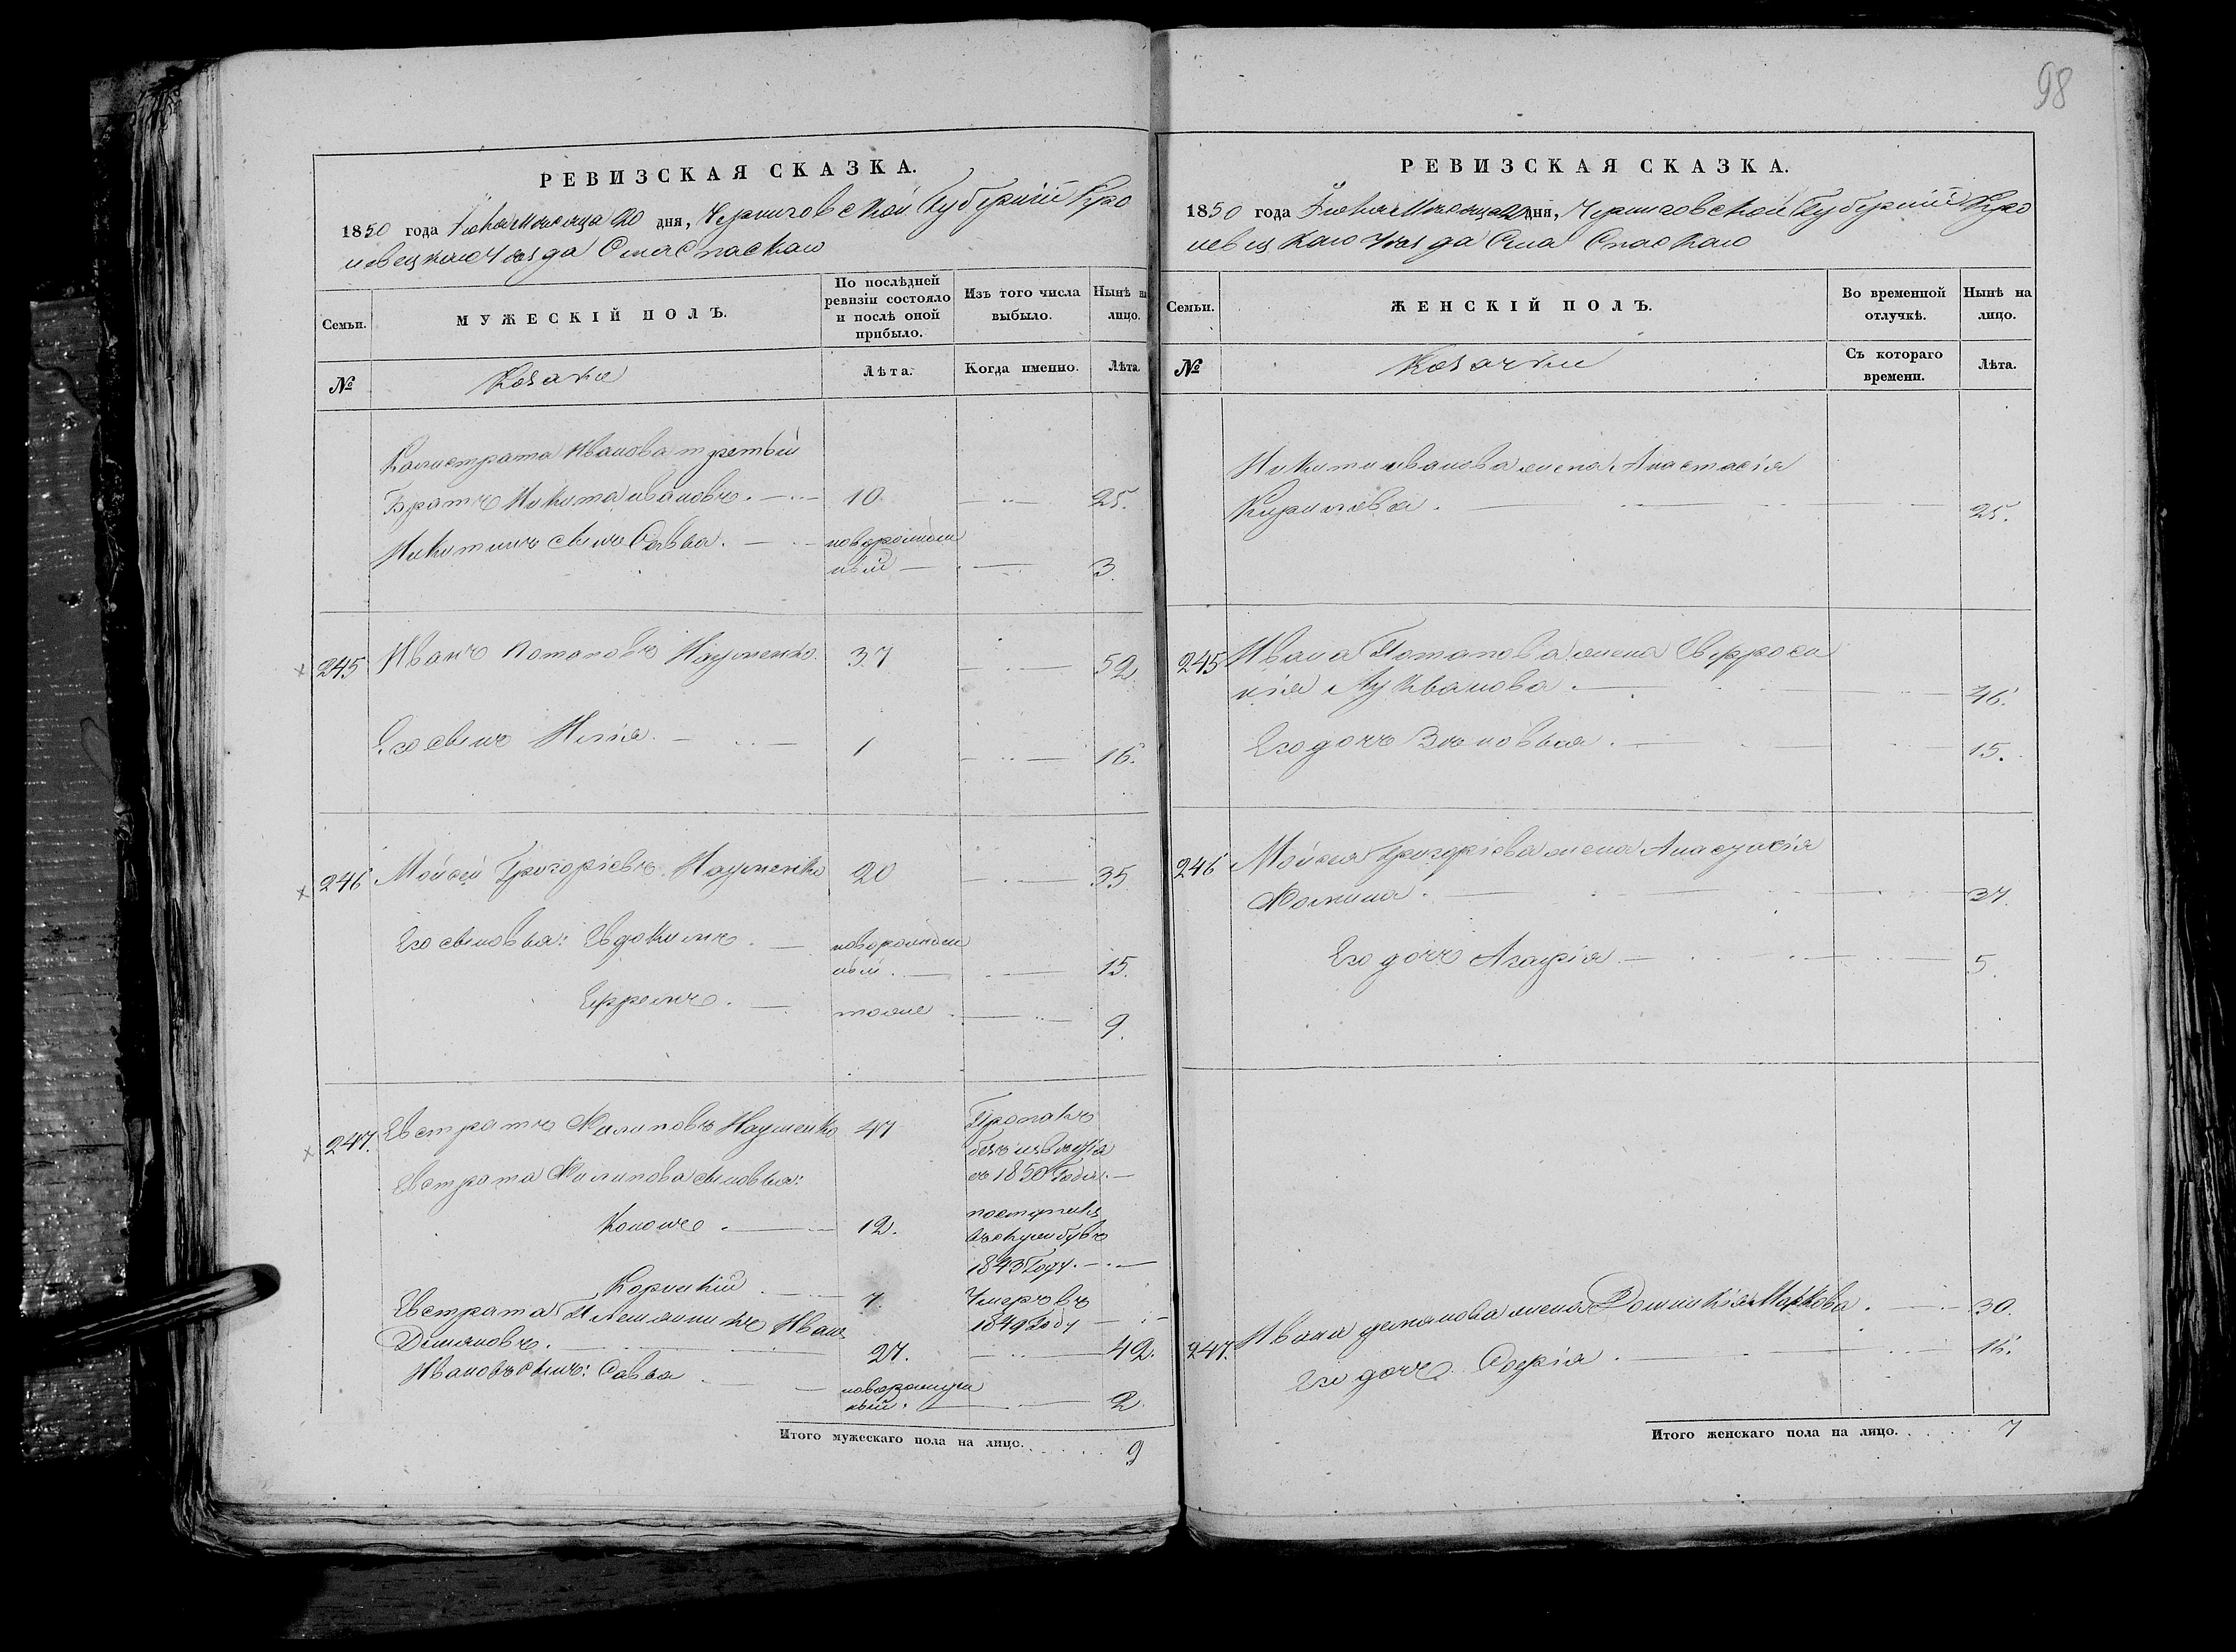 98
РЕВИЗСКАЯ СКАЗКА.
1850 года Июня Месяца 20 дня, Черниговской Губернии Кро
левецкаго Уезда Села Спаскаго
Семьи.
МУЖЕСКІЙ ПОЛЪ.
По послѣдней ревизіи состояло и послѣ оной прибыло.
Изъ того числа выбыло.
Нынѣ на лицо.
№
Козаки
Лѣта.
Когда именно.
Лѣта.
Калистрата Иванова третьий
Братъ Никита Ивановъ. 10. 25.
Никитинъ сынъ Савва. новорожден
ный 3.
245 Иванъ Потаповъ Науменко. 37 52
Его сынъ Илія. 1 16.
246 Мойсей Григоріевъ Науменко 20 35
Его сыновья: Евдокимъ. новорожден
ный. 15.
Ефремъ. тоже 9.
247. Евстратъ Филиповъ Науменко 47 Пропалъ
безъ извѣстія
съ 1850 Года.
Евстрата Филипова сыновья:
Кононъ. 12. поступилъ
въ
1843 Году.
Корнилій 7. Умеръ въ
1849 Году
Евстрата Племянникъ Иванъ
Демяновъ. 27. 42.
Ивановъ сынъ: Савва новорожден
ный. 2
Итого мужескаго пола на лицо. 9
РЕВИЗСКАЯ СКАЗКА.
1850 года Июня Месяца 20 дня, Черниговской Губернии Кро
левецкаго Уезда Села Спаскаго
Семьи.
ЖЕНСКІЙ ПОЛЪ.
Во временной отлучкѣ.
Нынѣ на лицо.
№
Козачки
Съ котораго времени.
Лѣта.
Никиты Иванова жена Анастасія
Кирилова. 25.
245 Ивана Потапова жена Евфроси
нія Лукьянова. 46.
Его дочь Зѣновья. 15.
246 Мойсея Григоріева жена Анастасія
Фомина. 37.
Его дочь Агафія. 5.
247. Ивана Демянова жена Домникія Маркова. 30.
Его дочь Софія. 16.
Итого женскаго пола на лицо. 7